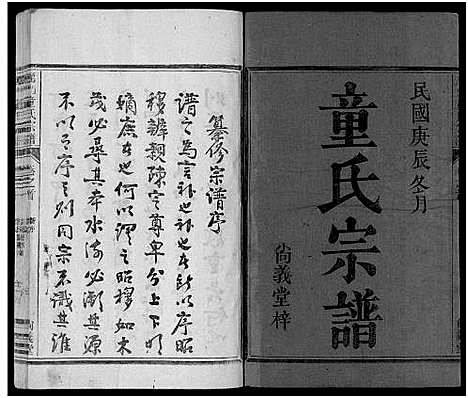 民國庚辰冬月
童氏宗譜
尚義堂梓
纂修宗譜序
譜之為言补也补也在所以序昭
穆辨親疎定尊卑分上下明
嫡庶在也何以譜之昭穆如木
茂必尋其本水深必漸其源
不以之序之则同宗不識其誰